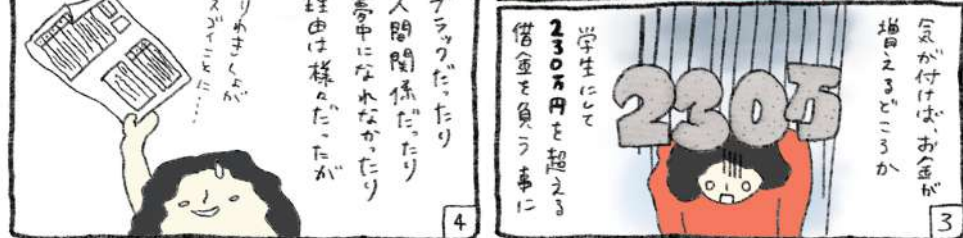 気が付けば、お金が
増えるどころか
230万
学生にして
230万円を超える
借金を負う事に
3
ブラックだったり
人間関係だったり
夢中になれなかったり
理由は様々だったが
りれきしょが
スゴイことに……
4